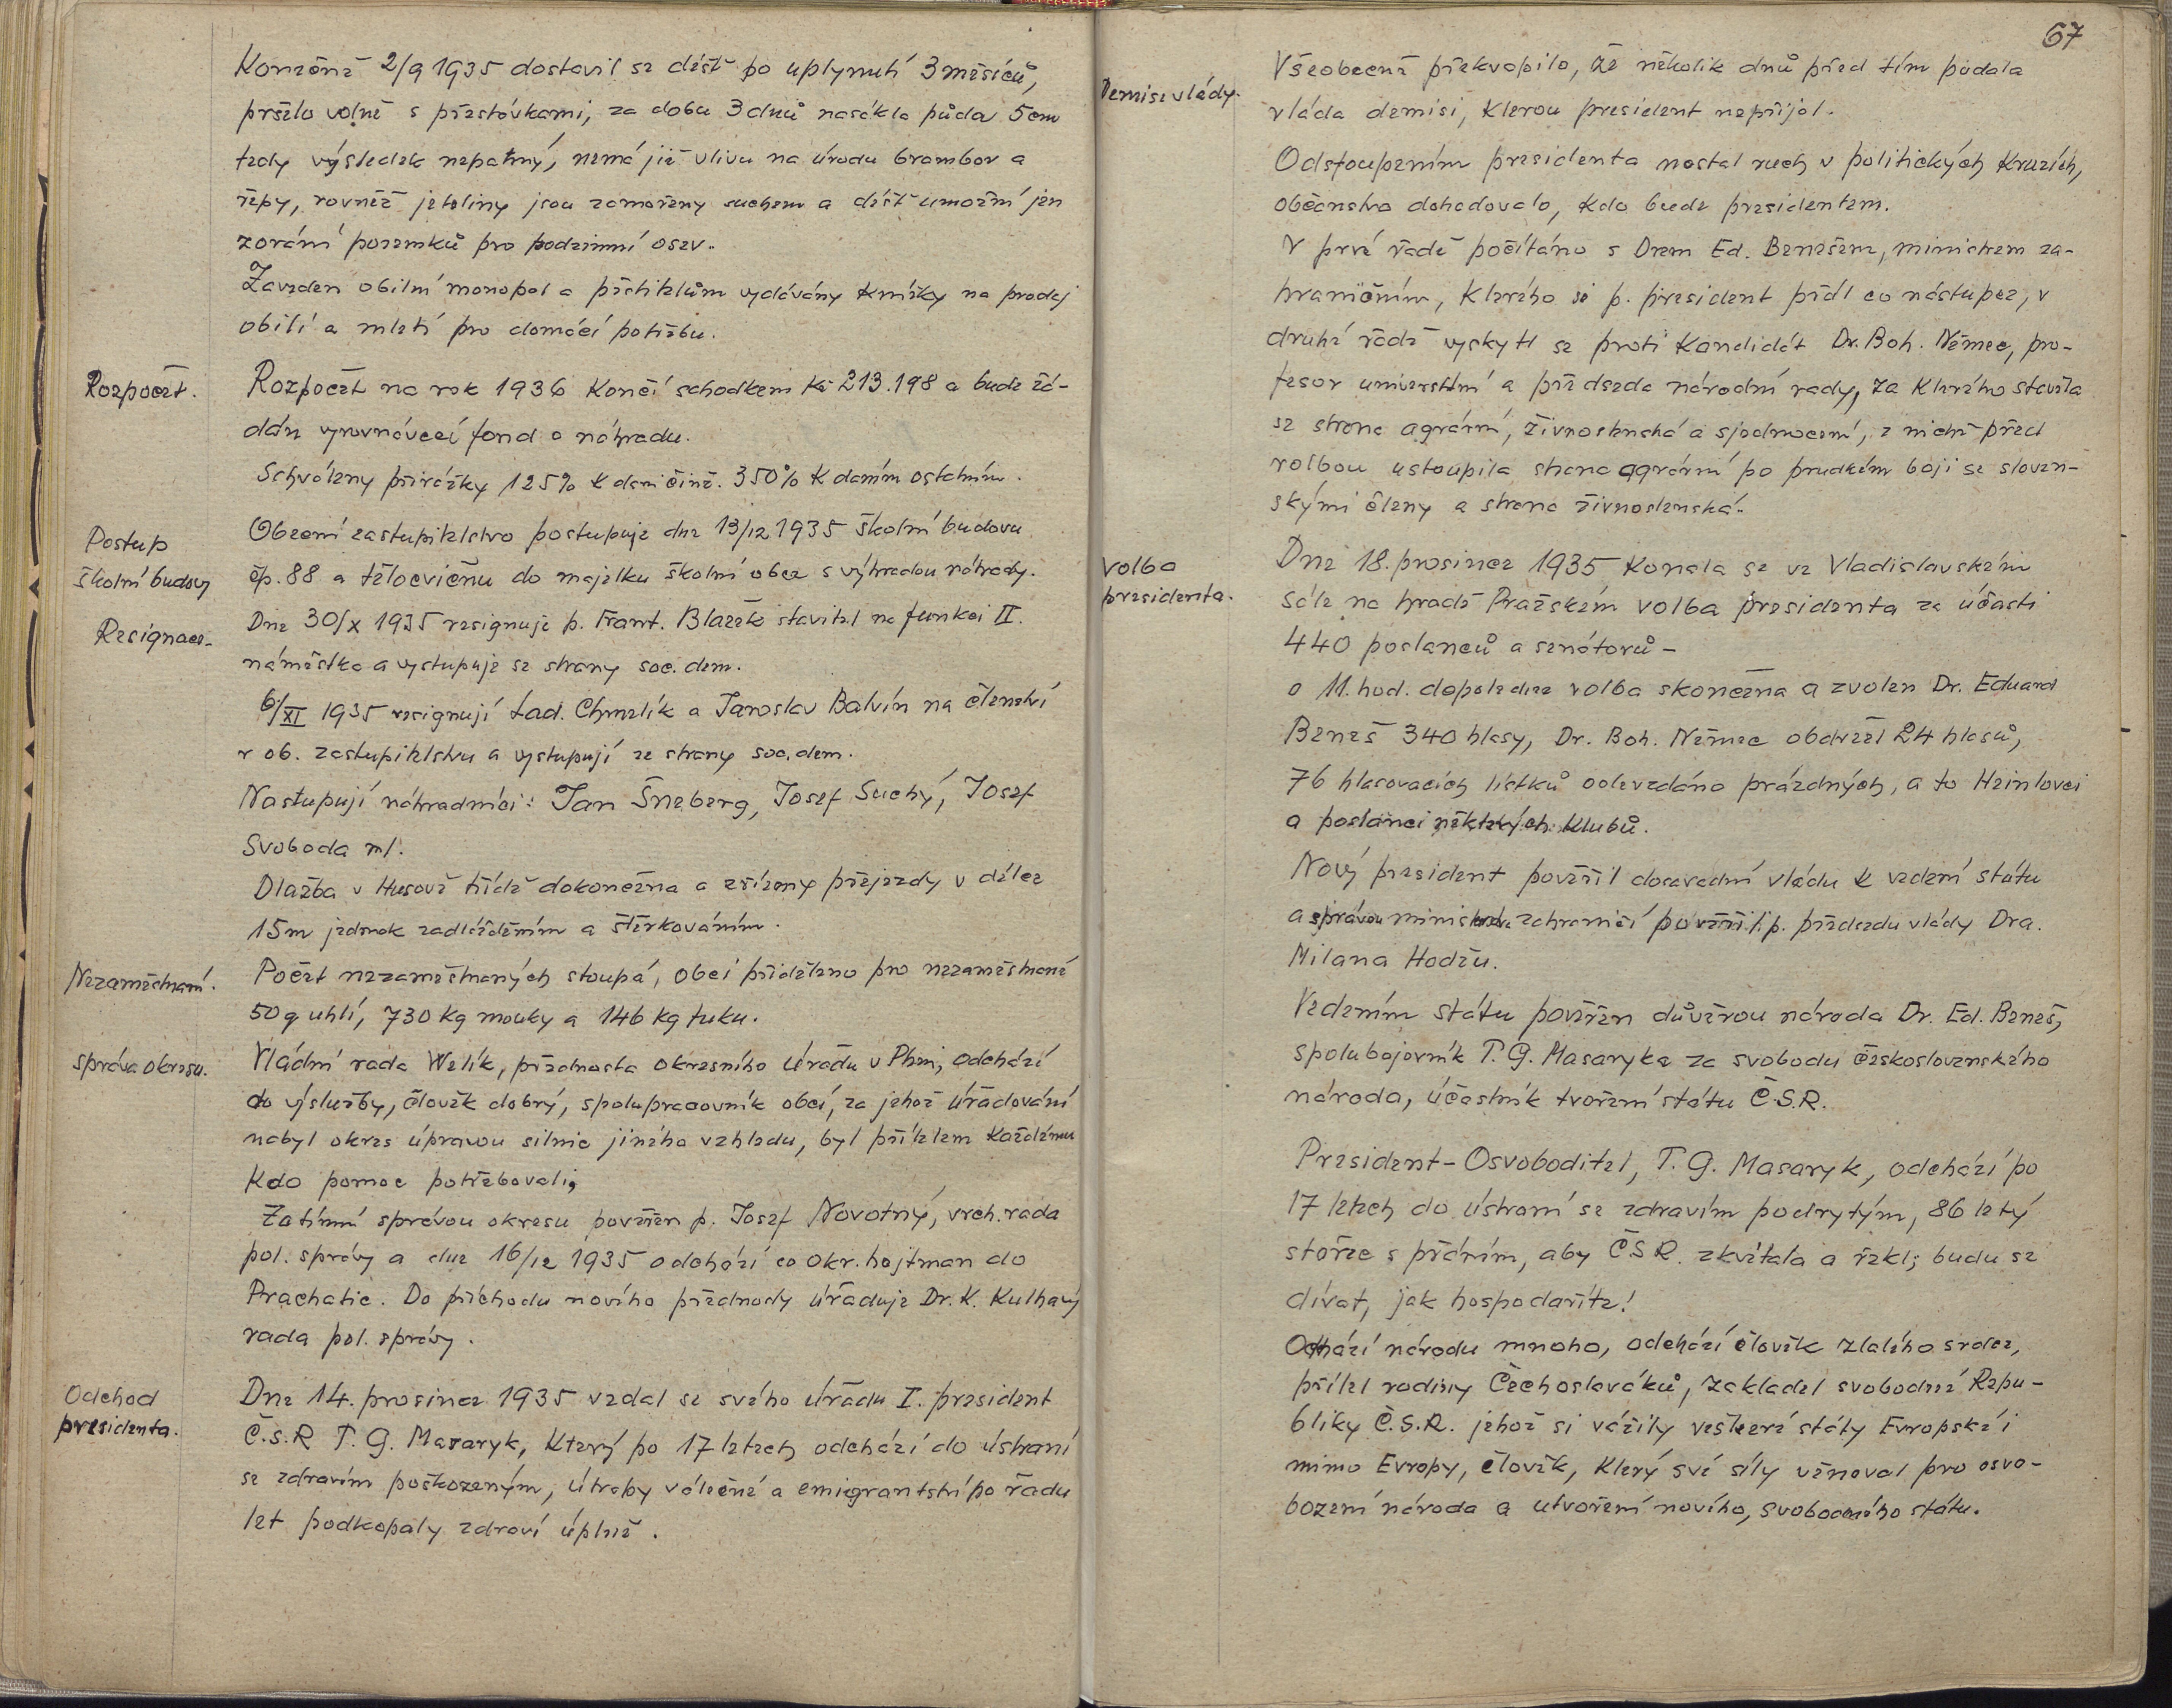 Konečně 2/9 1935 dostavil se déšť po uplynutí 3 měsíců,
pršelo volně s přestávkami, za dobu 3 dnů nasákla půda 5 cm
tedy výsledek nepatrný, nemá již vlivu na úrodu brambor a
řepy, rovněž jeteliny jsou zamořeny suchem a déšť umožní jen
zorání pozemků pro podzimní osev.
Zaveden obilní monopol a pěstitelům vydávány knížky na prodej
obilí a mletí pro domácí potřebu.
Rozpočet.
Rozpočet na rok 1936 končí schodkem Kč 213.198 a bude žá-
dán vyrovnávací fond o náhradu.
Schváleny přirážky 125% k domčině. 350% k daním ostatním.
Postup
školní budovy
Obecní zastupitelstvo postupuje dne 13/12 1935 školní budovu
čp. 88 a tělocvičnu do majetku školní obce s výhradou náhrady.
Resignace.
Dne 30/X 1935 resignuje p. Frant. Blažek stavitel na funkci II.
náměstka a vystupuje ze strany soc. dem.
6/XI 1935 resignují Lad. Chmelík a Jaroslav Balvín na členství
v ob. zastupitelstvu a vystupují ze strany soc. dem.
Nastupují náhradníci: Jan Šneberg, Josef Suchý, Josef
Svoboda ml.
Dlažba v Husově třídě dokončena a zřízeny přejezdy v délce
15m jednak zadlážděním a štěrkováním.
Nezaměstnaní.
Počet nezaměstnaných stoupá, obci přiděleno pro nezaměstnané
50 q uhlí, 730 kg mouky a 146 kg tuku.
správa okresu.
Vládní rada Welík, přednosta okresního úřadu v Plzni, odchází
do výslužby, člověk dobrý, spolupracovník obcí, za jehož úřadování
nabyl okres úpravou silnic jiného vzhledu, byl přítelem každému
kdo pomoc potřebovali,
Zatímní správou okresu pověřen p. Josef Novotný, vrch. rada
pol. správy a dne 16/12 1935 odchází co okr. hejtman do
Prachatic. Do příchodu nového přednosty úřaduje Dr. K. Kulhavý
rada pol. správy.
Odchod
presidenta.
Dne 14. prosince 1935 vzdal se svého úřadu I. president
Č.S.R T. G. Masaryk, který po 17 letech odchází do ústraní
se zdravím poškozeným, útrapy válečné a emigrantství po řadu
let podkopaly zdraví úplně.
67
Demise vlády.
Všeobecně překvapilo, že několik dnů před tím podala
vláda demisi, kterou president nepřijal.
Odstoupením presidenta nastal ruch v politických kruzích,
občanstvo dohadovalo, kdo bude presidentem.
V prvé řadě počítáno s Drem Ed. Benešem, ministrem za-
hraničním, kterého si p. president přál co nástupce, v
druhé řadě vyskytl se proti kandidát Dr. Boh. Němec, pro-
fesor universitní a předseda národní rady, za kterého stavěla
se strana agrární, živnostenská a sjednocení, z nichž před
volbou ustoupila strana agrární po prudkém boji se sloven-
skými členy a strana živnostenská.
Volba
presidenta.
Dne 18. prosince 1935 konala se ve Vladislavském
sále na hradě Pražském volba presidenta za účasti
440 poslanců a senátorů -
o 11. hod. dopoledne volba skončena a zvolen Dr. Eduard
Beneš 340 hlasy, Dr. Boh. Němec obdržel 24 hlasů,
76 hlasovacích lístků odevzdáno prázdných, a to Heinlovci
a poslanci některých klubů.
Nový president pověřil dosavadní vládu k vedení státu
a správou ministerstva zahraničí pověřil p. předsedu vlády Dra.
Milana Hodžu.
Vedením státu pověřen důvěrou národa Dr. Ed. Beneš,
spolubojovník T. G. Masaryka za svobodu československého
národa, účastník tvoření státu Č.S.R.
President-Osvoboditel, T. G. Masaryk, odchází po
17 letech do ústraní se zdravím podrytým, 86 letý
stařec s přáním, aby ČSR. zkvétala a řekl; budu se
dívat, jak hospodaříte!
Odchází národu mnoho, odchází člověk zlatého srdce,
přítel rodiny Čechoslováků, zakladatel svobodné Repu-
bliky Č.S.R. jehož si vážily veškeré státy Evropské i
mimo Evropy, člověk, který své síly věnoval pro osvo-
bození národa a utvoření nového, svobodného státu.